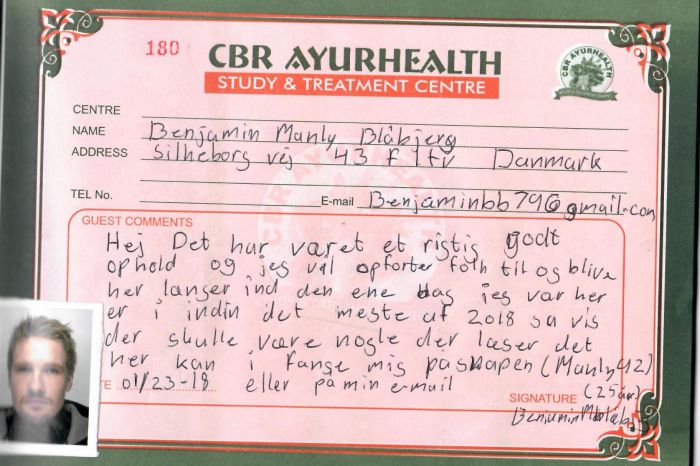 180
CBR AYURHEALTH
STUDY & TREATMENT CENTRE
CBR AYURHEALTH
CENTRE
NAME Benjamin Manly Blåbjerg
ADDRESS Silheborg vej 43 f 1 tv Danmark
TEL No. E-mail Benjaminbb79@gmail.com
GUEST COMMENTS
Hej Det har været et rigtig godt
ophold og jeg vil opforter folh til og blive
her længer ind den ene dag jeg var her
er i indin det meste af 2018 sa vis
der skulle være nogle der læser det
her kan i fange mig på skapen (Manly42)
DATE 01/23-18 eller på min e-mail
SIGNATURE (25 år)